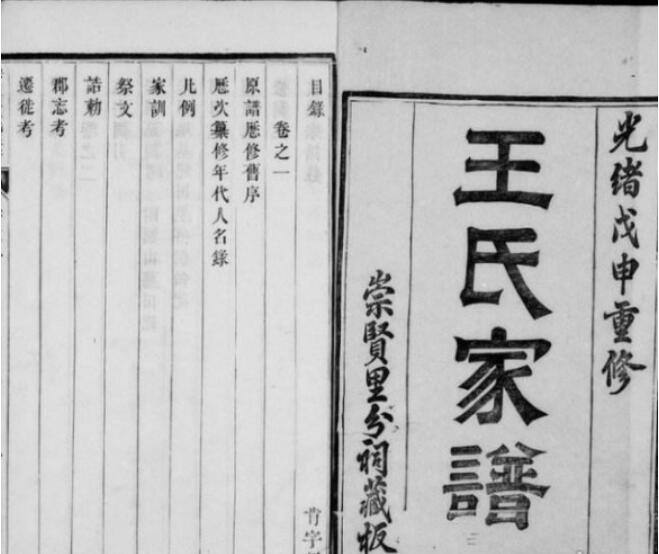 光緒戊申重修
王氏家譜
崇賢里分祠藏板
目錄
卷之一
原譜歷修舊序
歷次纂修年代人名錄
凡例
家訓
祭文
誥勅
郡忘考
遷徙考